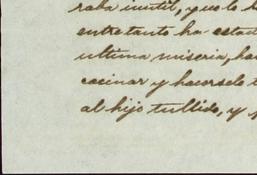 raba inutil, y se lo h
entretanto ha estad
ultima miseria, ha
cocinar y hacerselo t
al hijo tullido, y